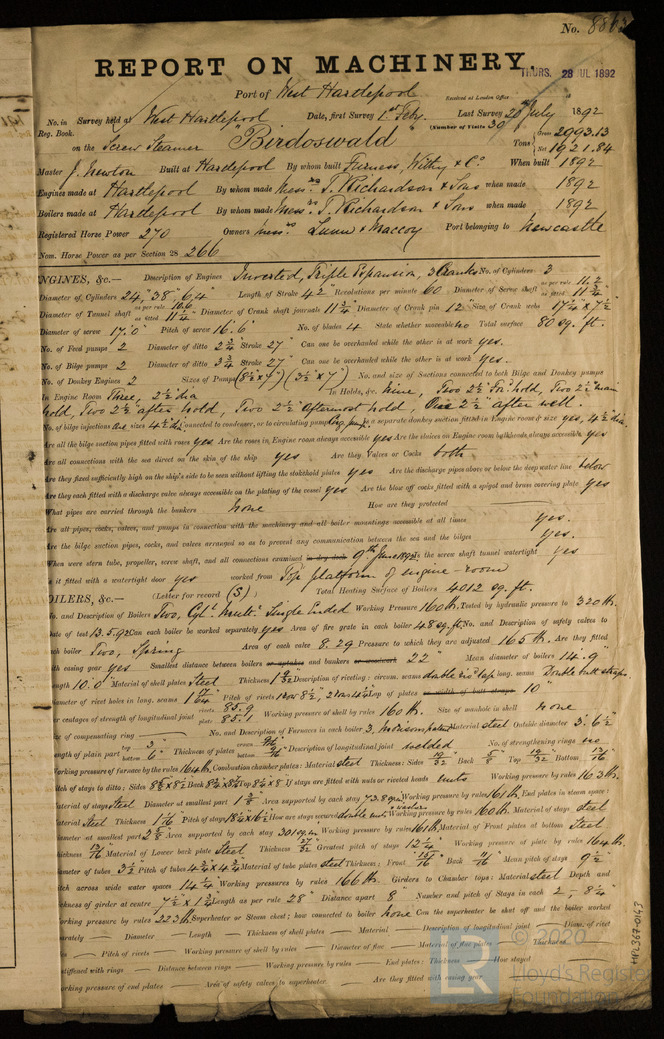 No. 8863
REPORT ON MACHINERY.
THURS. 28 JUL 1892
Port of West Hartlepool
Received at London Office
No. in Survey held at West Hartlepool Date, first Survey 1st Feby. Last Survey 20th July 1892
Reg. Book. (Number of Visits 30)
on the Screw Steamer "Birdoswald" Tons Gross 2993.13 Net 1921.84
Master J. Newton Built at Hartlepool By whom built Furness, Withy & Co. When built 1892
Engines made at Hartlepool By whom made Messrs T. Richardson & Sons when made 1892
Boilers made at Hartlepool By whom made Messrs T. Richardson & Sons when made 1892
Registered Horse Power 270 Owners Messrs Lunn & Maccoy Port belonging to Newcastle
Nom. Horse Power as per Section 28 266
NGINES, &c.— Description of Engines Inverted, Triple Expansion, 3 Cranks No. of Cylinders 3
Diameter of Cylinders 24", 38", 64" Length of Stroke 42" Revolutions per minute 60 Diameter of Screw shaft as per rule as fitted 11 3/4"
Diameter of Tunnel shaft as per rule 10.6 as fitted 11 1/4" Diameter of Crank shaft journals 11 3/4" Diameter of Crank pin 12" Size of Crank webs 17 1/4" x 7 1/2"
Diameter of screw 17'.0" Pitch of screw 16'.6" No. of blades 4 State whether moveable no Total surface 80 sq. ft.
No. of Feed pumps 2 Diameter of ditto 2 3/4" Stroke 27" Can one be overhauled while the other is at work yes.
No. of Bilge pumps 2 Diameter of ditto 3 3/4" Stroke 27" Can one be overhauled while the other is at work yes.
No. of Donkey Engines 2 Sizes of Pumps (8 1/2" x 7") (3 1/2" x 7") No. and size of Suctions connected to both Bilge and Donkey pumps
In Engine Room Three, 2 1/2" dia In Holds, &c. Nine, Two 2 1/2" For' hold, Two 2 1/2" main
hold, Two 2 1/2" after hold, Two 2 1/2" aftermost hold, One 2 1/2" after well.
No. of bilge injections one sizes 4 1/2 dia Connected to condenser, or to circulating pump Cirg. pump. Is a separate donkey suction fitted in Engine room & size yes, 4 1/2 dia.
Are all the bilge suction pipes fitted with roses yes Are the roses in Engine room always accessible yes Are the sluices on Engine room bulkheads always accessible yes
Are all connections with the sea direct on the skin of the ship yes Are they Valves or Cocks both
Are they fixed sufficiently high on the ship's side to be seen without lifting the stokehold plates yes Are the discharge pipes above or below the deep water line below
Are they each fitted with a discharge valve always accessible on the plating of the vessel yes Are the blow off cocks fitted with a spigot and brass covering plate yes
What pipes are carried through the bunkers none How are they protected —
Are all pipes, cocks, valves, and pumps in connection with the machinery and all boiler mountings accessible at all times yes.
Are the bilge suction pipes, cocks, and valves arranged so as to prevent any communication between the sea and the bilges yes.
When were stern tube, propeller, screw shaft, and all connections examined in dry dock 9th June 1892 Is the screw shaft tunnel watertight yes
Is it fitted with a watertight door yes worked from Top platform of engine-room
OILERS, &c.— (Letter for record (S)) Total Heating Surface of Boilers 4012 sq. ft.
No. and Description of Boilers Two, Cyl' Multi' Single Ended Working Pressure 160 lb. Tested by hydraulic pressure to 320 lb.
Date of test 13.5.92 Can each boiler be worked separately yes Area of fire grate in each boiler 48 sq. ft. No. and Description of safety valves to
each boiler Two, Spring Area of each valve 8.29 Pressure to which they are adjusted 165 lb. Are they fitted
with easing gear yes Smallest distance between boilers or uptakes and bunkers or woodwork 22" Mean diameter of boilers 14'.9"
Length 10'.0" Material of shell plates Steel Thickness 1 3/32" Description of riveting: circum. seams double riv' lap long. seams Double butt straps
Diameter of rivet holes in long. seams 1 7/64" Pitch of rivets Lap of plates or width of butt straps 10"
Per centages of strength of longitudinal joint rivets 85.9 plate 85.1 Working pressure of shell by rules 160 lb. Size of manhole in shell none.
Size of compensating ring — No. and Description of Furnaces in each boiler 3, Morison patent Material steel Outside diameter 3'. 6 1/2"
Length of plain part top 3" bottom 6" Thickness of plates crown bottom 9/16" Description of longitudinal joint welded No. of strengthening rings no
Working pressure of furnace by the rules 164 lb. Combustion chamber plates: Material steel Thickness: Sides 19/32" Back 5/8" Top 19/32" Bottom 13/16"
Pitch of stays to ditto: Sides Back Top If stays are fitted with nuts or riveted heads nuts Working pressure by rules 163 lb.
Material of stays steel Diameter at smallest part 1 3/8" Area supported by each stay 73.8 sq in Working pressure by rules 161 lb. End plates in steam space:
Material steel Thickness Pitch of stays How are stays secured double nuts & washers Working pressure by rules 160 lb. Material of stays steel
Diameter at smallest part 2 5/8 Area supported by each stay 301 sq in Working pressure by rules 161 lb. Material of Front plates at bottom steel
Thickness 13/16" Material of Lower back plate steel Thickness 27/32 Greatest pitch of stays 12 1/4" Working pressure of plate by rules 164 lb.
Diameter of tubes 3 1/2" Pitch of tubes 4 3/4" x 4 3/4" Material of tube plates steel Thickness: Front 13/16" Back Mean pitch of stays 9 1/2"
Pitch across wide water spaces 14 1/4" Working pressures by rules 166 lb. Girders to Chamber tops: Material steel Depth and
thickness of girder at centre 7 1/2" x 1 3/4" Length as per rule 28" Distance apart 8" Number and pitch of Stays in each 2, 8 1/4"
Working pressure by rules 223 lb. Superheater or Steam chest; how connected to boiler none Can the superheater be shut off and the boiler worked
separately — Diameter — Length — Thickness of shell plates — Material — Description of longitudinal joint — Diam. of rivet
— Pitch of rivets — Working pressure of shell by rules — Diameter of flue — Material of flue plates — Thickness —
If stiffened with rings — Distance between rings — Working pressure by rules — End plates: Thickness — How stayed
Working pressure of end plates — Area of safety valves to superheater — Are they fitted with easing gear
© 2020
Lloyd's Register
Foundation